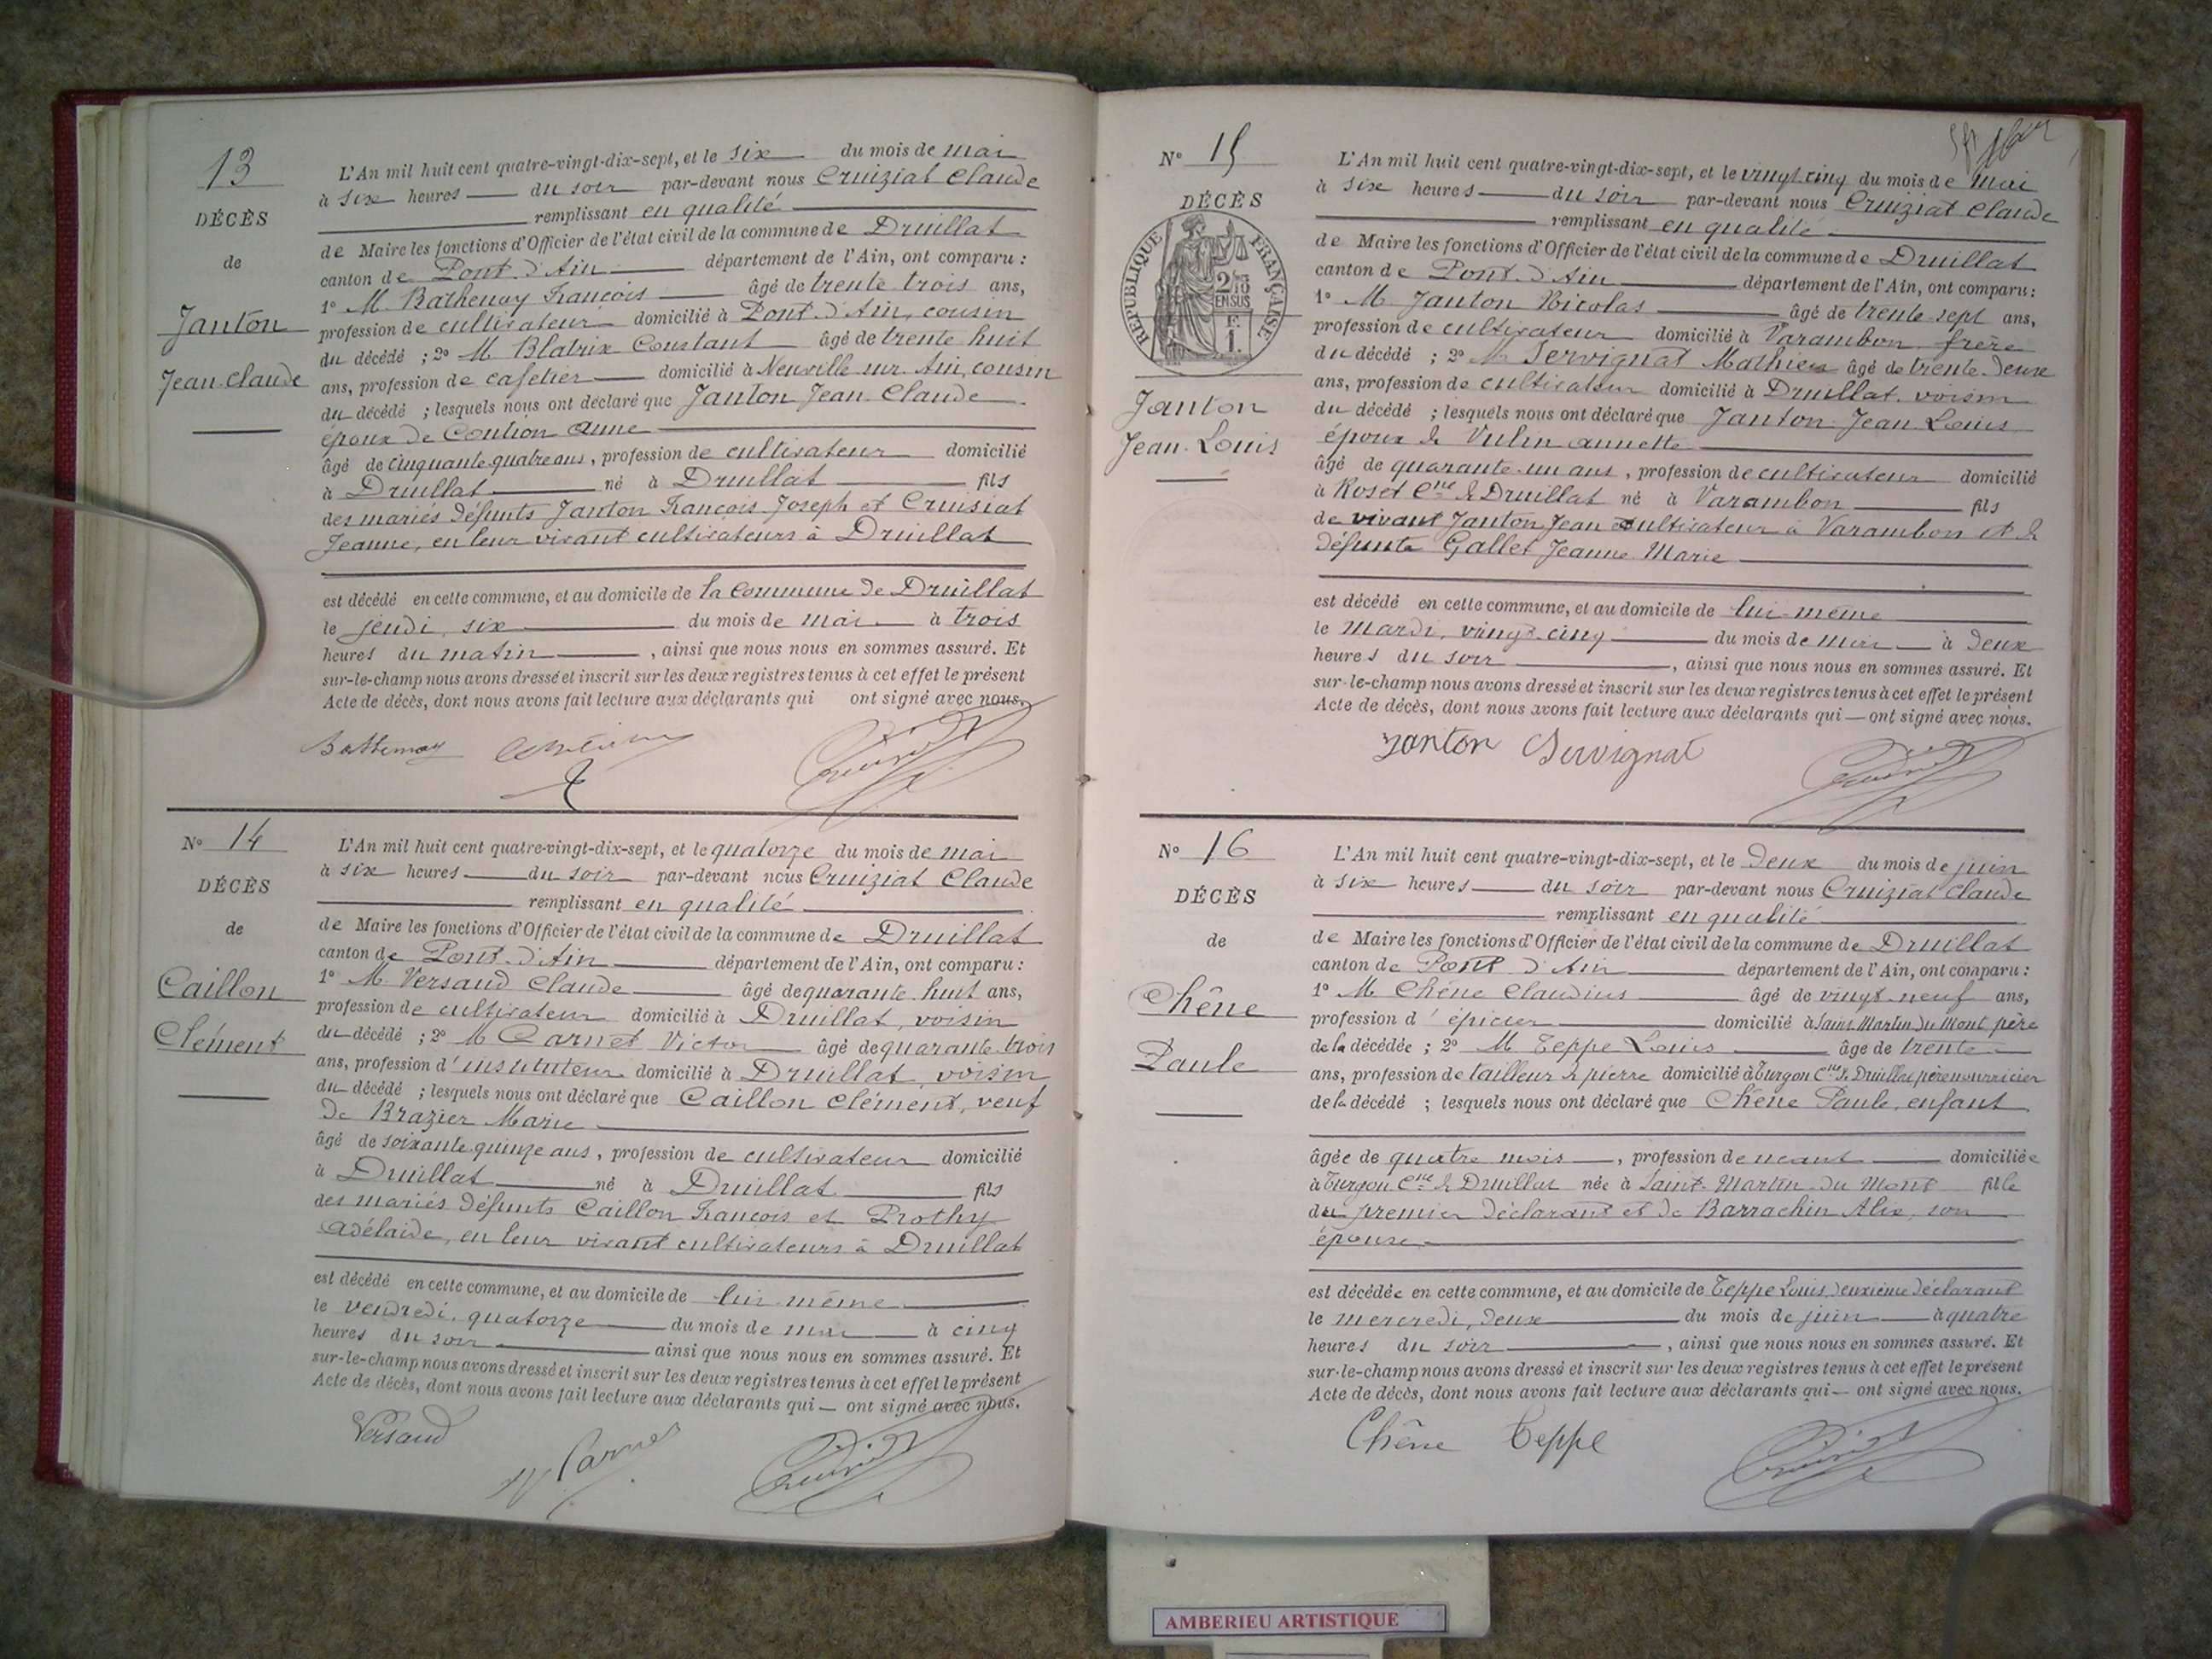 13
DÉCÈS
de
Janton
Jean-Claude
L'An mil huit cent quatre-vingt-dix-sept, et le six du mois de mai
à six heures du soir par-devant nous Cruiziat Claude
remplissant en qualité
de Maire les fonctions d'Officier de l'état civil de la commune de Druillat
canton de Pont-d'Ain département de l'Ain, ont comparu :
1° M. Bathenay François âgé de trente trois ans,
profession de cultivateur domicilié à Pont-d'Ain, cousin
du décédé ; 2° M. Blatrix Constant âgé de trente huit
ans, profession de cafetier domicilié à Neuville sur Ain, cousin
du décédé ; lesquels nous ont déclaré que Janton Jean-Claude
époux de Coution Anne
âgé de cinquante quatre ans, profession de cultivateur domicilié
à Druillat né à Druillat fils
des mariés défunts Janton François Joseph et Cruisiat
Jeanne, en leur vivant cultivateurs à Druillat
est décédé en cette commune, et au domicile de la commune de Druillat
le jeudi, six du mois de mai à trois
heures du matin, ainsi que nous nous en sommes assuré. Et
sur-le-champ nous avons dressé et inscrit sur les deux registres tenus à cet effet le présent
Acte de décès, dont nous avons fait lecture aux déclarants qui ont signé avec nous.
Bathenay
N° 14
DÉCÈS
de
Caillon
Clément
L'An mil huit cent quatre-vingt-dix-sept, et le quatorze du mois de mai
à six heures du soir par-devant nous Cruiziat Claude
remplissant en qualité
de Maire les fonctions d'Officier de l'état civil de la commune de Druillat
canton de Pont-d'Ain département de l'Ain, ont comparu :
1° M. Versaud Claude âgé de quarante huit ans,
profession de cultivateur domicilié à Druillat, voisin
du décédé ; 2° M Carnet Victor âgé de quarante trois
ans, profession d'instituteur domicilié à Druillat, voisin
du décédé ; lesquels nous ont déclaré que Caillon Clément, veuf
de Brazier Marie
âgé de soixante quinze ans, profession de cultivateur domicilié
à Druillat né à Druillat fils
des mariés défunts Caillon François et Prothy
Adélaide, en leur vivant cultivateurs à Druillat
est décédé en cette commune, et au domicile de lui-même
le vendredi, quatorze du mois de mai à cinq
heures du soir ainsi que nous nous en sommes assuré. Et
sur-le-champ nous avons dressé et inscrit sur les deux registres tenus à cet effet le présent
Acte de décès, dont nous avons fait lecture aux déclarants qui — ont signé avec nous.
Versaud V. Carnet
N° 15
DÉCÈS
RÉPUBLIQUE FRANÇAISE
2/10
EN SUS
F.
1.
Janton
Jean-Louis
L'An mil huit cent quatre-vingt-dix-sept, et le vingt cinq du mois de mai
à six heures du soir par-devant nous Cruiziat Claude
remplissant en qualité
de Maire les fonctions d'Officier de l'état civil de la commune de Druillat
canton de Pont-d'Ain département de l'Ain, ont comparu :
1° M. Janton Nicolas âgé de trente-sept ans,
profession de cultivateur domicilié à Varambon, frère
du décédé ; 2° M. Servignat Mathieu âgé de trente-deux
ans, profession de cultivateur domicilié à Druillat, voisin
du décédé ; lesquels nous ont déclaré que Janton Jean Louis
époux de Vulin Annette
âgé de quarante-un ans, profession de cultivateur domicilié
à Roset Cne de Druillat né à Varambon fils
de vivant Janton Jean cultivateur à Varambon et de
défunte Gallet Jeanne Marie
est décédé en cette commune, et au domicile de lui-même
le mardi, vingt-cinq du mois de mai à deux
heures du soir, ainsi que nous nous en sommes assuré. Et
sur-le-champ nous avons dressé et inscrit sur les deux registres tenus à cet effet le présent
Acte de décès, dont nous avons fait lecture aux déclarants qui — ont signé avec nous.
Janton Servignat
N° 16
DÉCÈS
de
Chêne
Paule
L'An mil huit cent quatre-vingt-dix-sept, et le deux du mois de juin
à six heures du soir par-devant nous Cruiziat Claude
remplissant en qualité
de Maire les fonctions d'Officier de l'état civil de la commune de Druillat
canton de Pont d'Ain département de l'Ain, ont comparu :
1° M Chêne Claudius âgé de vingt-neuf ans,
profession d'épicier domicilié à Saint Martin du Mont père
de la décédée ; 2° M Teppe Louis âgé de trente
ans, profession de tailleur de pierre domicilié à Turgon Cne de Druillat père nourricier
de la décédé ; lesquels nous ont déclaré que Chêne Paule, enfant
âgée de quatre mois, profession de néant domiciliée
à Turgon Cne de Druillat née à Saint-Martin-du Mont fille
du premier déclarant et de Barrachin Alix, son
épouse
est décédée en cette commune, et au domicile de Teppe Louis, deuxième déclarant
le mercredi, deux du mois de juin à quatre
heures du soir, ainsi que nous nous en sommes assuré. Et
sur-le-champ nous avons dressé et inscrit sur les deux registres tenus à cet effet le présent
Acte de décès, dont nous avons fait lecture aux déclarants qui — ont signé avec nous.
Chêne Teppe
AMBERIEU ARTISTIQUE